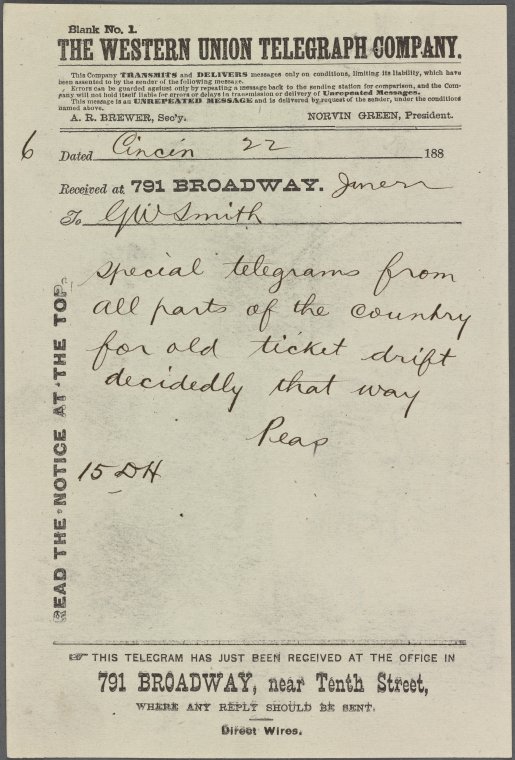 Blank No. 1.
THE WESTERN UNION TELEGRAPH COMPANY.
This Company TRANSMITS and DELIVERS messages only on conditions, limiting its liability, which have
been assented to by the sender of the following message.
Errors can be guarded against only by repeating a message back to the sending station for comparison, and the Com-
pany will not hold itself liable for errors or delays in transmission or delivery of Unrepeated Messages.
This message is an UNREPEATED MESSAGE and is delivered by request of the sender, under the conditions
named above.
A. R. BREWER, Sec'y. NORVIN GREEN, President.
6 Dated Cincin 22 188
Received at 791 BROADWAY.
To GW Smith
special telegrams from
all parts of the country
for old ticket drift
decidedly that way
15 DH
READ THE NOTICE AT THE TOP.
☞ THIS TELEGRAM HAS JUST BEEN RECEIVED AT THE OFFICE IN
791 BROADWAY, near Tenth Street,
WHERE ANY REPLY SHOULD BE SENT.
Direct Wires.